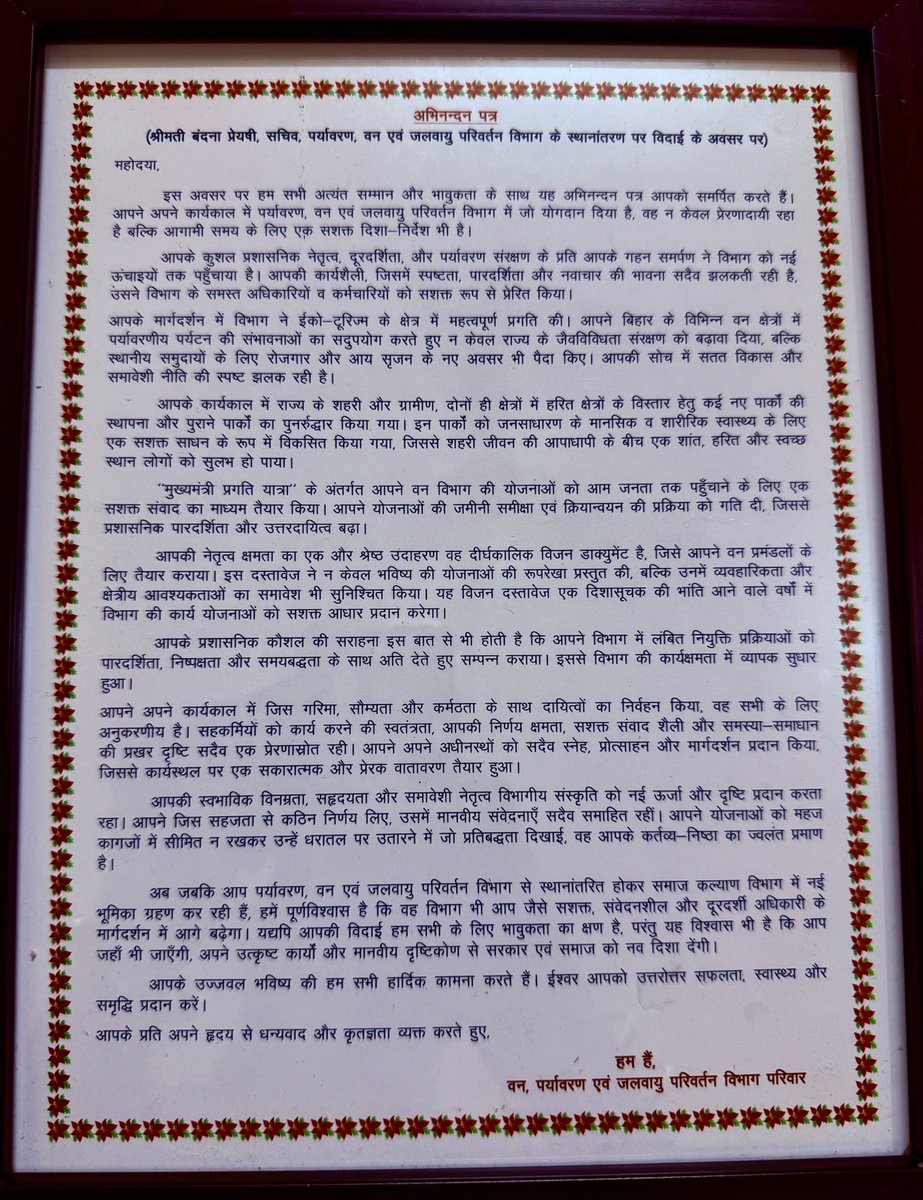 अभिनन्दन पत्र
(श्रीमती बंदना प्रेयषी, सचिव, पर्यावरण, वन एवं जलवायु परिवर्तन विभाग के स्थानांतरण पर विदाई के अवसर पर)
महोदया,
इस अवसर पर हम सभी अत्यंत सम्मान और भावुकता के साथ यह अभिनन्दन पत्र आपको समर्पित करते हैं।
आपने अपने कार्यकाल में पर्यावरण, वन एवं जलवायु परिवर्तन विभाग में जो योगदान दिया है, वह न केवल प्रेरणादायी रहा
है बल्कि आगामी समय के लिए एक सशक्त दिशा–निर्देश भी है।
आपके कुशल प्रशासनिक नेतृत्व, दूरदर्शिता, और पर्यावरण संरक्षण के प्रति आपके गहन समर्पण ने विभाग को नई
ऊंचाइयों तक पहुँचाया है। आपकी कार्यशैली, जिसमें स्पष्टता, पारदर्शिता और नवाचार की भावना सदैव झलकती रही है,
उसने विभाग के समस्त अधिकारियों व कर्मचारियों को सशक्त रूप से प्रेरित किया।
आपके मार्गदर्शन में विभाग ने ईको–टूरिज्म के क्षेत्र में महत्वपूर्ण प्रगति की। आपने बिहार के विभिन्न वन क्षेत्रों में
पर्यावरणीय पर्यटन की संभावनाओं का सदुपयोग करते हुए न केवल राज्य के जैवविविधता संरक्षण को बढ़ावा दिया, बल्कि
स्थानीय समुदायों के लिए रोजगार और आय सृजन के नए अवसर भी पैदा किए। आपकी सोच में सतत विकास और
समावेशी नीति की स्पष्ट झलक रही है।
आपके कार्यकाल में राज्य के शहरी और ग्रामीण, दोनों ही क्षेत्रों में हरित क्षेत्रों के विस्तार हेतु कई नए पार्कों की
स्थापना और पुराने पार्कों का पुनर्रुद्धार किया गया। इन पार्कों को जनसाधारण के मानसिक व शारीरिक स्वास्थ्य के लिए
एक सशक्त साधन के रूप में विकसित किया गया, जिससे शहरी जीवन की आपाधापी के बीच एक शांत, हरित और स्वच्छ
स्थान लोगों को सुलभ हो पाया।
"मुख्यमंत्री प्रगति यात्रा" के अंतर्गत आपने वन विभाग की योजनाओं को आम जनता तक पहुँचाने के लिए एक
सशक्त संवाद का माध्यम तैयार किया। आपने योजनाओं की जमीनी समीक्षा एवं क्रियान्वयन की प्रक्रिया को गति दी, जिससे
प्रशासनिक पारदर्शिता और उत्तरदायित्व बढ़ा।
आपकी नेतृत्व क्षमता का एक और श्रेष्ठ उदाहरण वह दीर्घकालिक विजन डाक्युमेंट है, जिसे आपने वन प्रमंडलों के
लिए तैयार कराया। इस दस्तावेज ने न केवल भविष्य की योजनाओं की रूपरेखा प्रस्तुत की, बल्कि उनमें व्यवहारिकता और
क्षेत्रीय आवश्यकताओं का समावेश भी सुनिश्चित किया। यह विजन दस्तावेज एक दिशासूचक की भांति आने वाले वर्षों में
विभाग की कार्य योजनाओं को सशक्त आधार प्रदान करेगा।
आपके प्रशासनिक कौशल की सराहना इस बात से भी होती है कि आपने विभाग में लंबित नियुक्ति प्रक्रियाओं को
पारदर्शिता, निष्पक्षता और समयबद्धता के साथ अति देते हुए सम्पन्न कराया। इससे विभाग की कार्यक्षमता में व्यापक सुधार
हुआ।
आपने अपने कार्यकाल में जिस गरिमा, सौम्यता और कर्मठता के साथ दायित्वों का निर्वहन किया, वह सभी के लिए
अनुकरणीय है। सहकर्मियों को कार्य करने की स्वतंत्रता, आपकी निर्णय क्षमता, सशक्त संवाद शैली और समस्या–समाधान
की प्रखर दृष्टि सदैव एक प्रेरणास्रोत रही। आपने अपने अधीनस्थों को सदैव स्नेह, प्रोत्साहन और मार्गदर्शन प्रदान किया,
जिससे कार्यस्थल पर एक सकारात्मक और प्रेरक वातावरण तैयार हुआ।
आपकी स्वभाविक विनम्रता, सहृदयता और समावेशी नेतृत्व विभागीय संस्कृति को नई ऊर्जा और दृष्टि प्रदान करता
रहा। आपने जिस सहजता से कठिन निर्णय लिए, उसमें मानवीय संवेदनाएँ सदैव समाहित रहीं। आपने योजनाओं को महज
कागजों में सीमित न रखकर उन्हें धरातल पर उतारने में जो प्रतिबद्धता दिखाई, वह आपके कर्तव्य–निष्ठा का ज्वलंत प्रमाण
है।
अब जबकि आप पर्यावरण, वन एवं जलवायु परिवर्तन विभाग से स्थानांतरित होकर समाज कल्याण विभाग में नई
भूमिका ग्रहण कर रही हैं, हमें पूर्णविश्वास है कि वह विभाग भी आप जैसे सशक्त, संवेदनशील और दूरदर्शी अधिकारी के
मार्गदर्शन में आगे बढ़ेगा। यद्यपि आपकी विदाई हम सभी के लिए भावुकता का क्षण है, परंतु यह विश्वास भी है कि आप
जहाँ भी जाएँगी, अपने उत्कृष्ट कार्यों और मानवीय दृष्टिकोण से सरकार एवं समाज को नव दिशा देंगी।
आपके उज्जवल भविष्य की हम सभी हार्दिक कामना करते हैं। ईश्वर आपको उत्तरोत्तर सफलता, स्वास्थ्य और
समृद्धि प्रदान करें।
आपके प्रति अपने हृदय से धन्यवाद और कृतज्ञता व्यक्त करते हुए,
हम हैं,
वन, पर्यावरण एवं जलवायु परिवर्तन विभाग परिवार